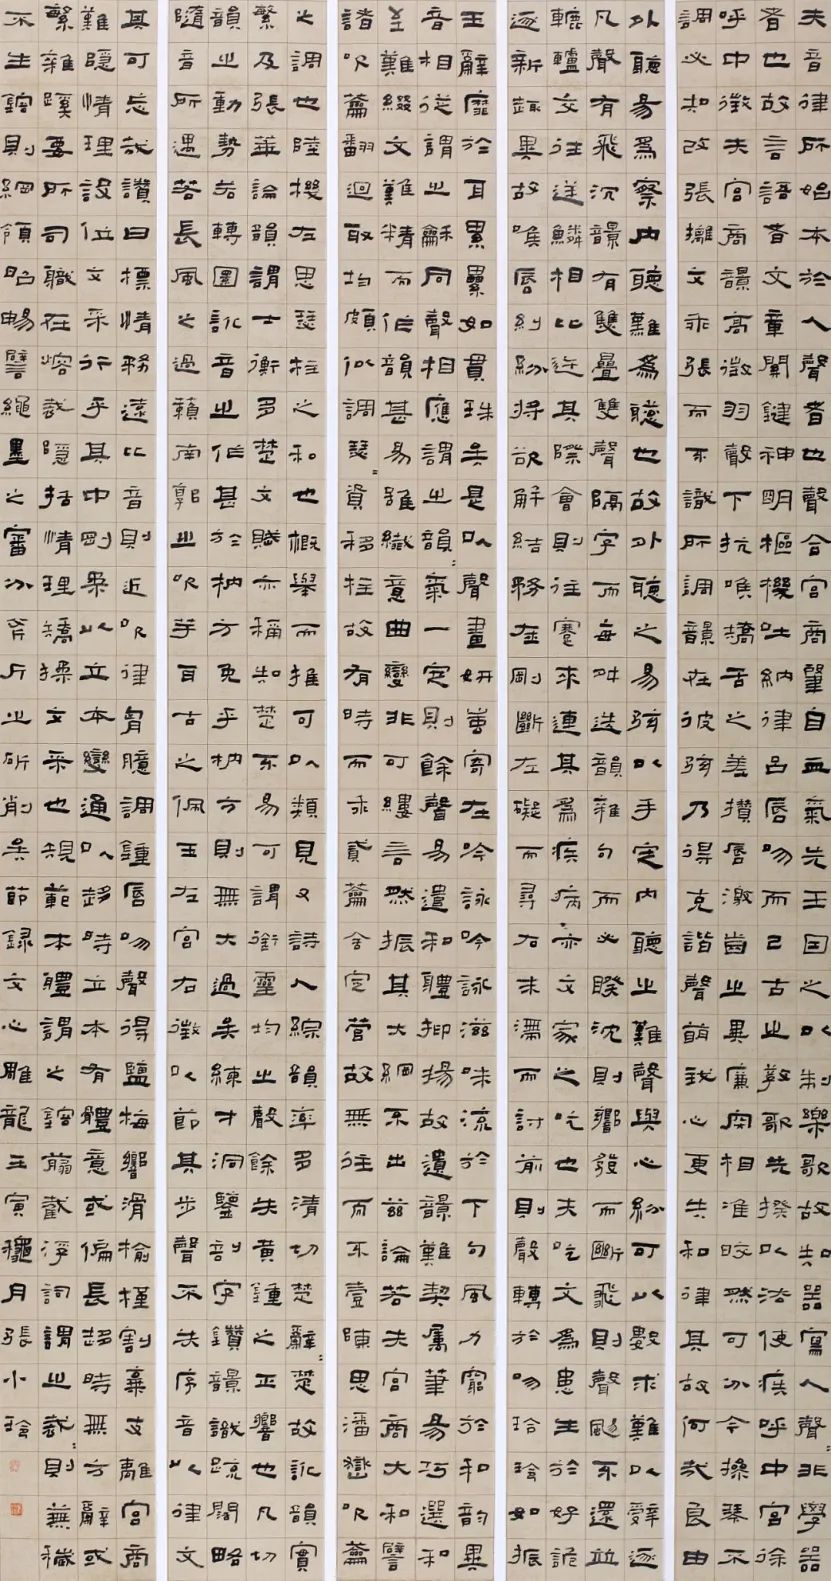 夫音律所始本於人聲者也聲合宮商肇自血氣先王因之以制樂歌故知器寫人聲〻非學器
者也故言語者文章關鍵神明樞機吐納律呂唇吻而已古之教歌先揆以法使疾呼中宮徐
呼中徵夫宮商韻高徵羽聲下抗喉矯舌之差攢唇激齒之異廉肉相準皎然可分今操琴不
調必知改張摛文乖張而不識所調韻在彼弦乃得克諧聲萌我心更失和律其故何哉良由
外聽易爲察內聽難爲聰也故外聽之易弦以手定內聽之難聲與心紛可以數求難以辭逐
凡聲有飛沉韻有雙疊雙聲隔字而每舛迭韻雜句而必睽沈則響發而斷飛則聲颺不還並
轆轤交往逆鱗相比迕其際會則往蹇來連其爲疾病亦文家之吃也夫吃文爲患生於好詭
逐新趣異故喉唇糾紛將欲解結務在剛斷左礙而尋右末滯而討前則聲轉於吻玲玲如振
玉辭靡於耳累累如貫珠矣是以聲畫妍蚩寄在吟詠吟詠滋味流於下句風力窮於和韵異
音相從謂之龢同聲相應謂之韻〻氣一定則餘聲易遣和體抑揚故遺韻難契屬筆易巧選和
至難綴文難精而作韻甚易雖纖意曲變非可縷言然振其大綱不出茲論若夫宮商大和譬
諸吹籥翻迴取均頗似調瑟〻資移柱故有時而乖貳籥含定管故無往而不壹陳思潘岳吹籥
之調也陸機左思瑟柱之和也概舉而推可以類見又詩人綜韻率多清切楚辭〻楚故訛韻實
繁及張華論韻謂士衡多楚文賦亦稱知楚不易可謂銜靈均之聲餘失黄鍾之正響也凡切
韻之動勢若轉圜訛音之作甚於枘方免乎枘方則無大過矣練才洞鑒剖字鑽韻識疏闊略
隨音所遇若長風之過籟南郭之吹竽耳古之佩玉左宮右徵以節其步聲不失序音以律文
其可忘哉讚曰標情務遠比音則近吹律胷臆調鍾唇吻聲得鹽梅響滑榆槿割棄支離宮商
難隱情理設位文采行乎其中剛柔以立本變通以趨時立本有體意或偏長趨時無方辭或
繁雜蹊要所司職在熔裁隱括情理矯揉文采也規範本體謂之鎔翦截浮詞謂之裁〻則蕪穢
不生鎔則綱領昭暢譬繩墨之審分斧斤之斫削矣節錄文心雕龍壬寅龝月張小玲